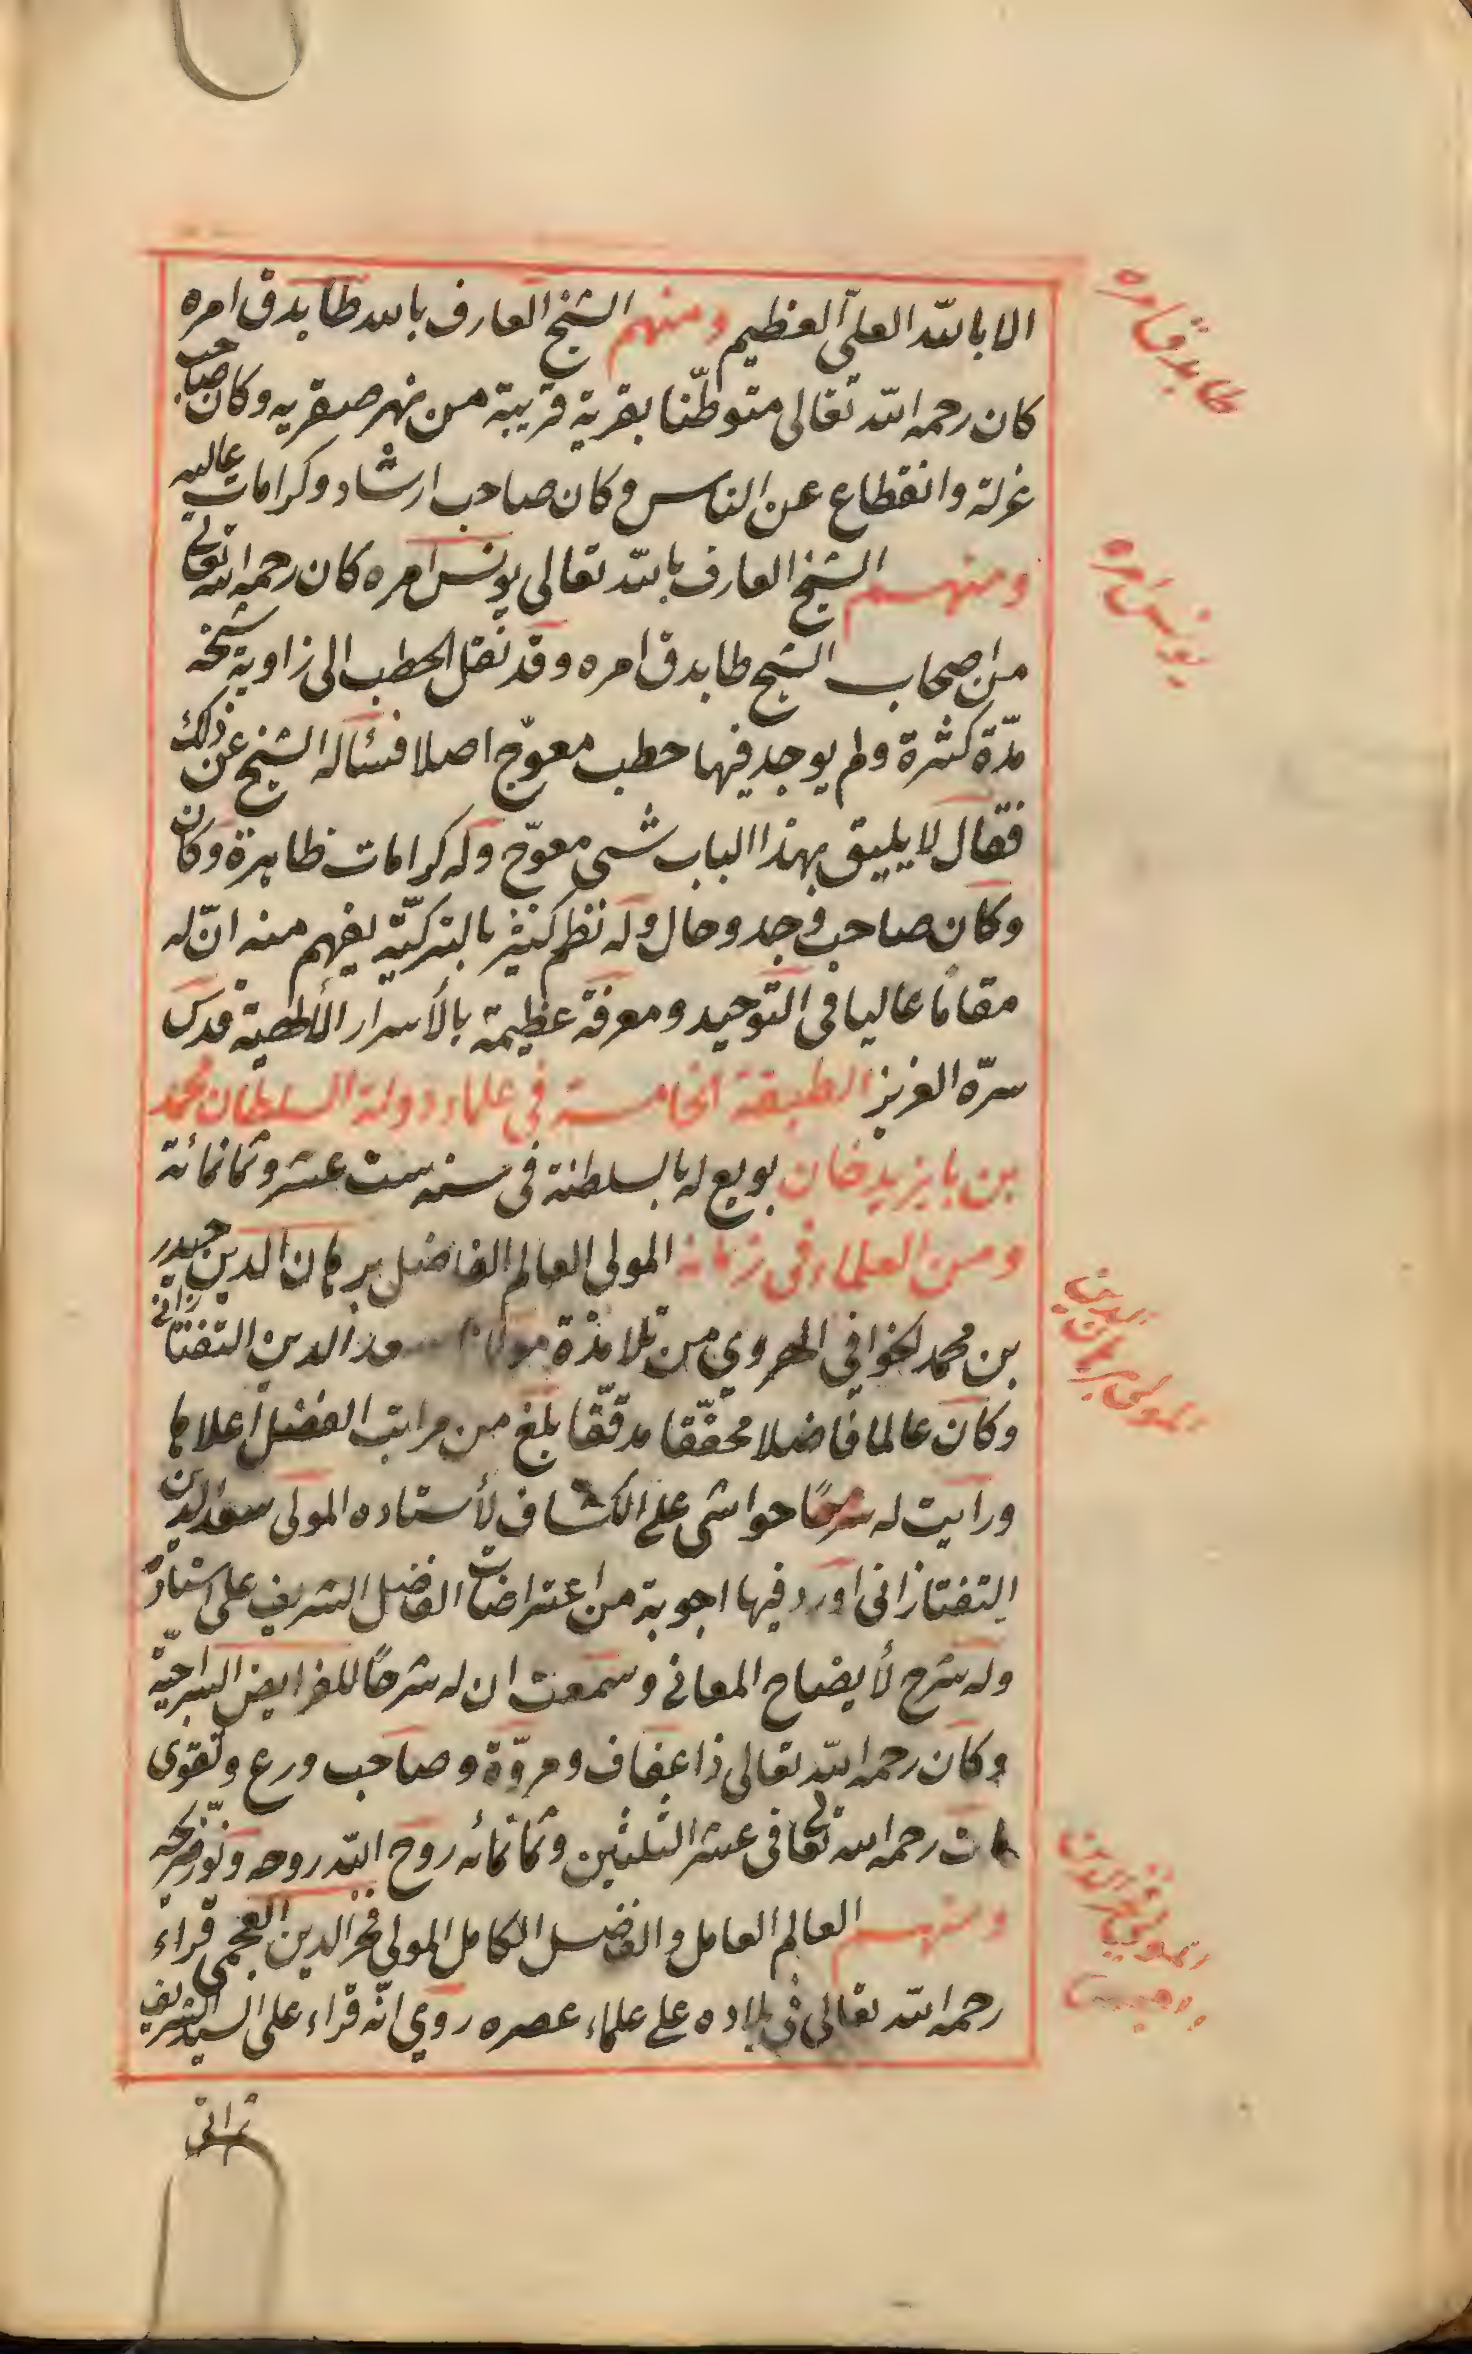 الا بالله العلىّ العظيم ومنهم الشيخ العارف بالله طابدق امره
كان رحمه الله تعالى متوطّنا بقرية قريبة من نهر صقريه وكان صاحب
عزلة وانقطاع عن الناس وكان صاحب ارشاد وكرامات عاليه
ومنهم الشيخ العارف بالله تعالى يونس امره كان رحمه الله تعالى
من اصحاب الشيخ طابدق امره وقد نقل الحطب الى زاوية شيخه
مدّة كثيرة ولم يوجد فيها حطب معوّج اصلا فسأله الشيخ عن ذلك
فقال لا يليق بهذا الباب شئ معوّج وله كرامات ظاهرة وكان
وكان صاحب وجد وحال وله نظم كثير بالتركيّة يفهم منه انّ له
مقاما عاليا فى التوحيد ومعرفة عظيمة بالأسرار الألهية قدس
سرّه العزيز الطبقة الخامسة في علماء دولة السلطان محمد
بن بايزيد خان بويع له بالسلطنة فى سنه ست عشر وثمانمائة
ومن العلماء فى زمانه المولى العالم الفاضل برهان الدين حيدر
بن محمد الخوافي الهروي من تلامذة مولانا سعد الدين التفتازانى
وكان عالما فاضلا محقّقا مدقّقا بلغ من مراتب الفضل اعلاها
ورايت له شرحًا حواشى على الكشاف لأستاده المولى سعد الدين
التفتازانى اورد فيها اجوبة من اعتراضات الفاضل الشريف على استاده
وله شرح لأيضاح المعاني وسمعت ان له شرحًا للفرايض السراجيّة
وكان رحمه الله تعالى ذا عفاف ومروّة وصاحب ورع وتقوى
مات رحمه الله تعالى فى عشر الثلثين وثمانمائه روح الله روحه ونوّر ضريحه
ومنهم العالم العامل والفاضل الكامل المولى فخر الدين العجمي قراء
رحمه الله تعالى فى بلاده على علماء عصره روي انّه قراء على السيد الشريف
طابدق امره
يونس امره
المولى برهان الدين
المولى فخر الدين العجمى